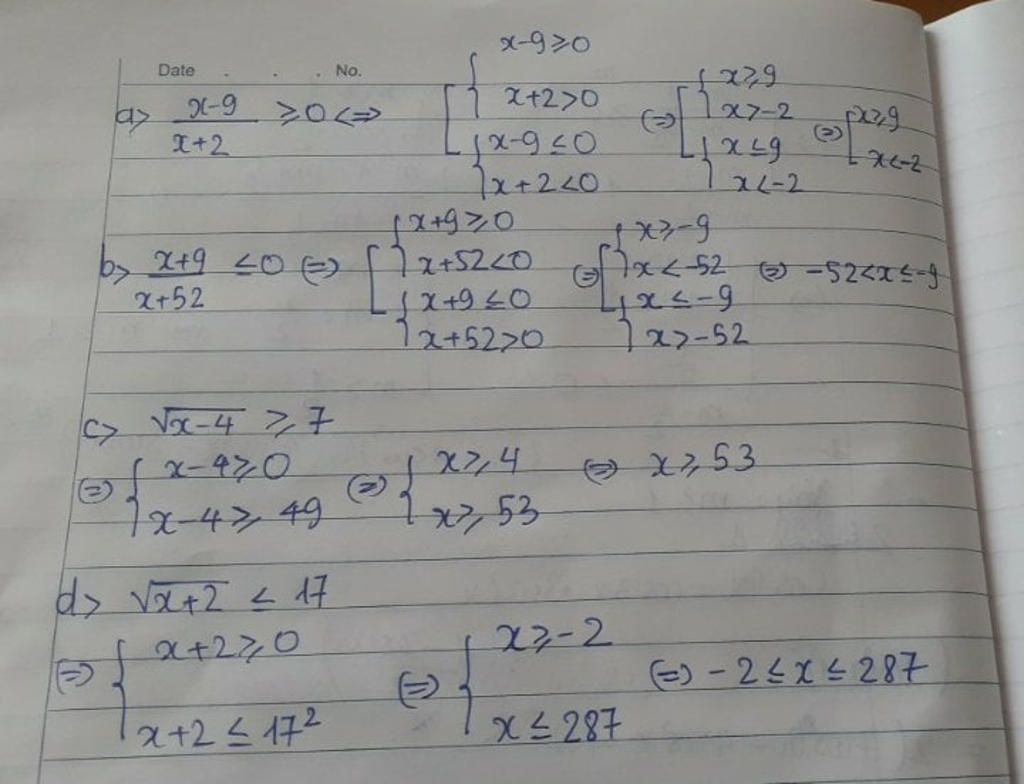 Date . . . No.
a> (x-9)/(x+2) ≥ 0 <=> [ { x-9 ≥ 0 ; x+2 > 0 ; { x-9 ≤ 0 ; x+2 < 0 (=) [ { x ≥ 9 ; x > -2 ; { x ≤ 9 ; x < -2 (=) [ x ≥ 9 ; x < -2
b> (x+9)/(x+52) ≤ 0 (=) [ { x+9 ≥ 0 ; x+52 < 0 ; { x+9 ≤ 0 ; x+52 > 0 (=) [ { x ≥ -9 ; x < -52 ; { x ≤ -9 ; x > -52 (=) -52 < x ≤ -9
c> √(x-4) ≥ 7
(=) { x-4 ≥ 0 ; x-4 ≥ 49 (=) { x ≥ 4 ; x ≥ 53 (=) x ≥ 53
d> √(x+2) ≤ 17
(=) { x+2 ≥ 0 ; x+2 ≤ 17² (=) { x ≥ -2 ; x ≤ 287 (=) -2 ≤ x ≤ 287